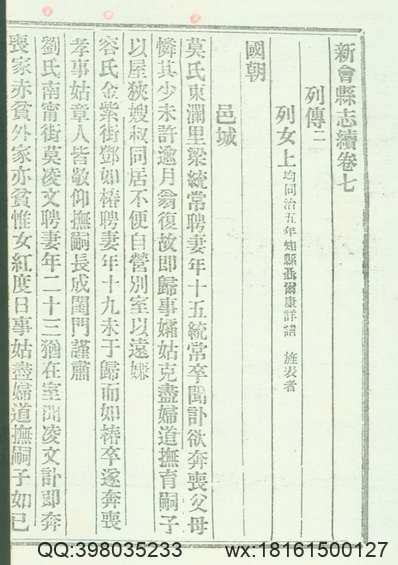 新會縣志續卷七
列傳二
列女上均同治五年知縣聶爾康詳請 旌表者
國朝
邑城
莫氏東瀾里梁統常聘妻年十五統常卒聞訃欲奔喪父母
憐其少未許逾月翁復故即歸事孀姑克盡婦道撫育嗣子
以屋狹嫂叔同居不便自營別室以遠嫌
容氏金紫街鄧如椿聘妻年十九未于歸而如椿卒遂奔喪
孝事姑章人皆敬仰撫嗣長成閨門謹肅
劉氏南甯街莫凌文聘妻年二十三猶在室聞凌文訃即奔
喪家赤貧外家亦貧惟女紅度日事姑盡婦道撫嗣子如已
QQ:398035233 wx:18161500127